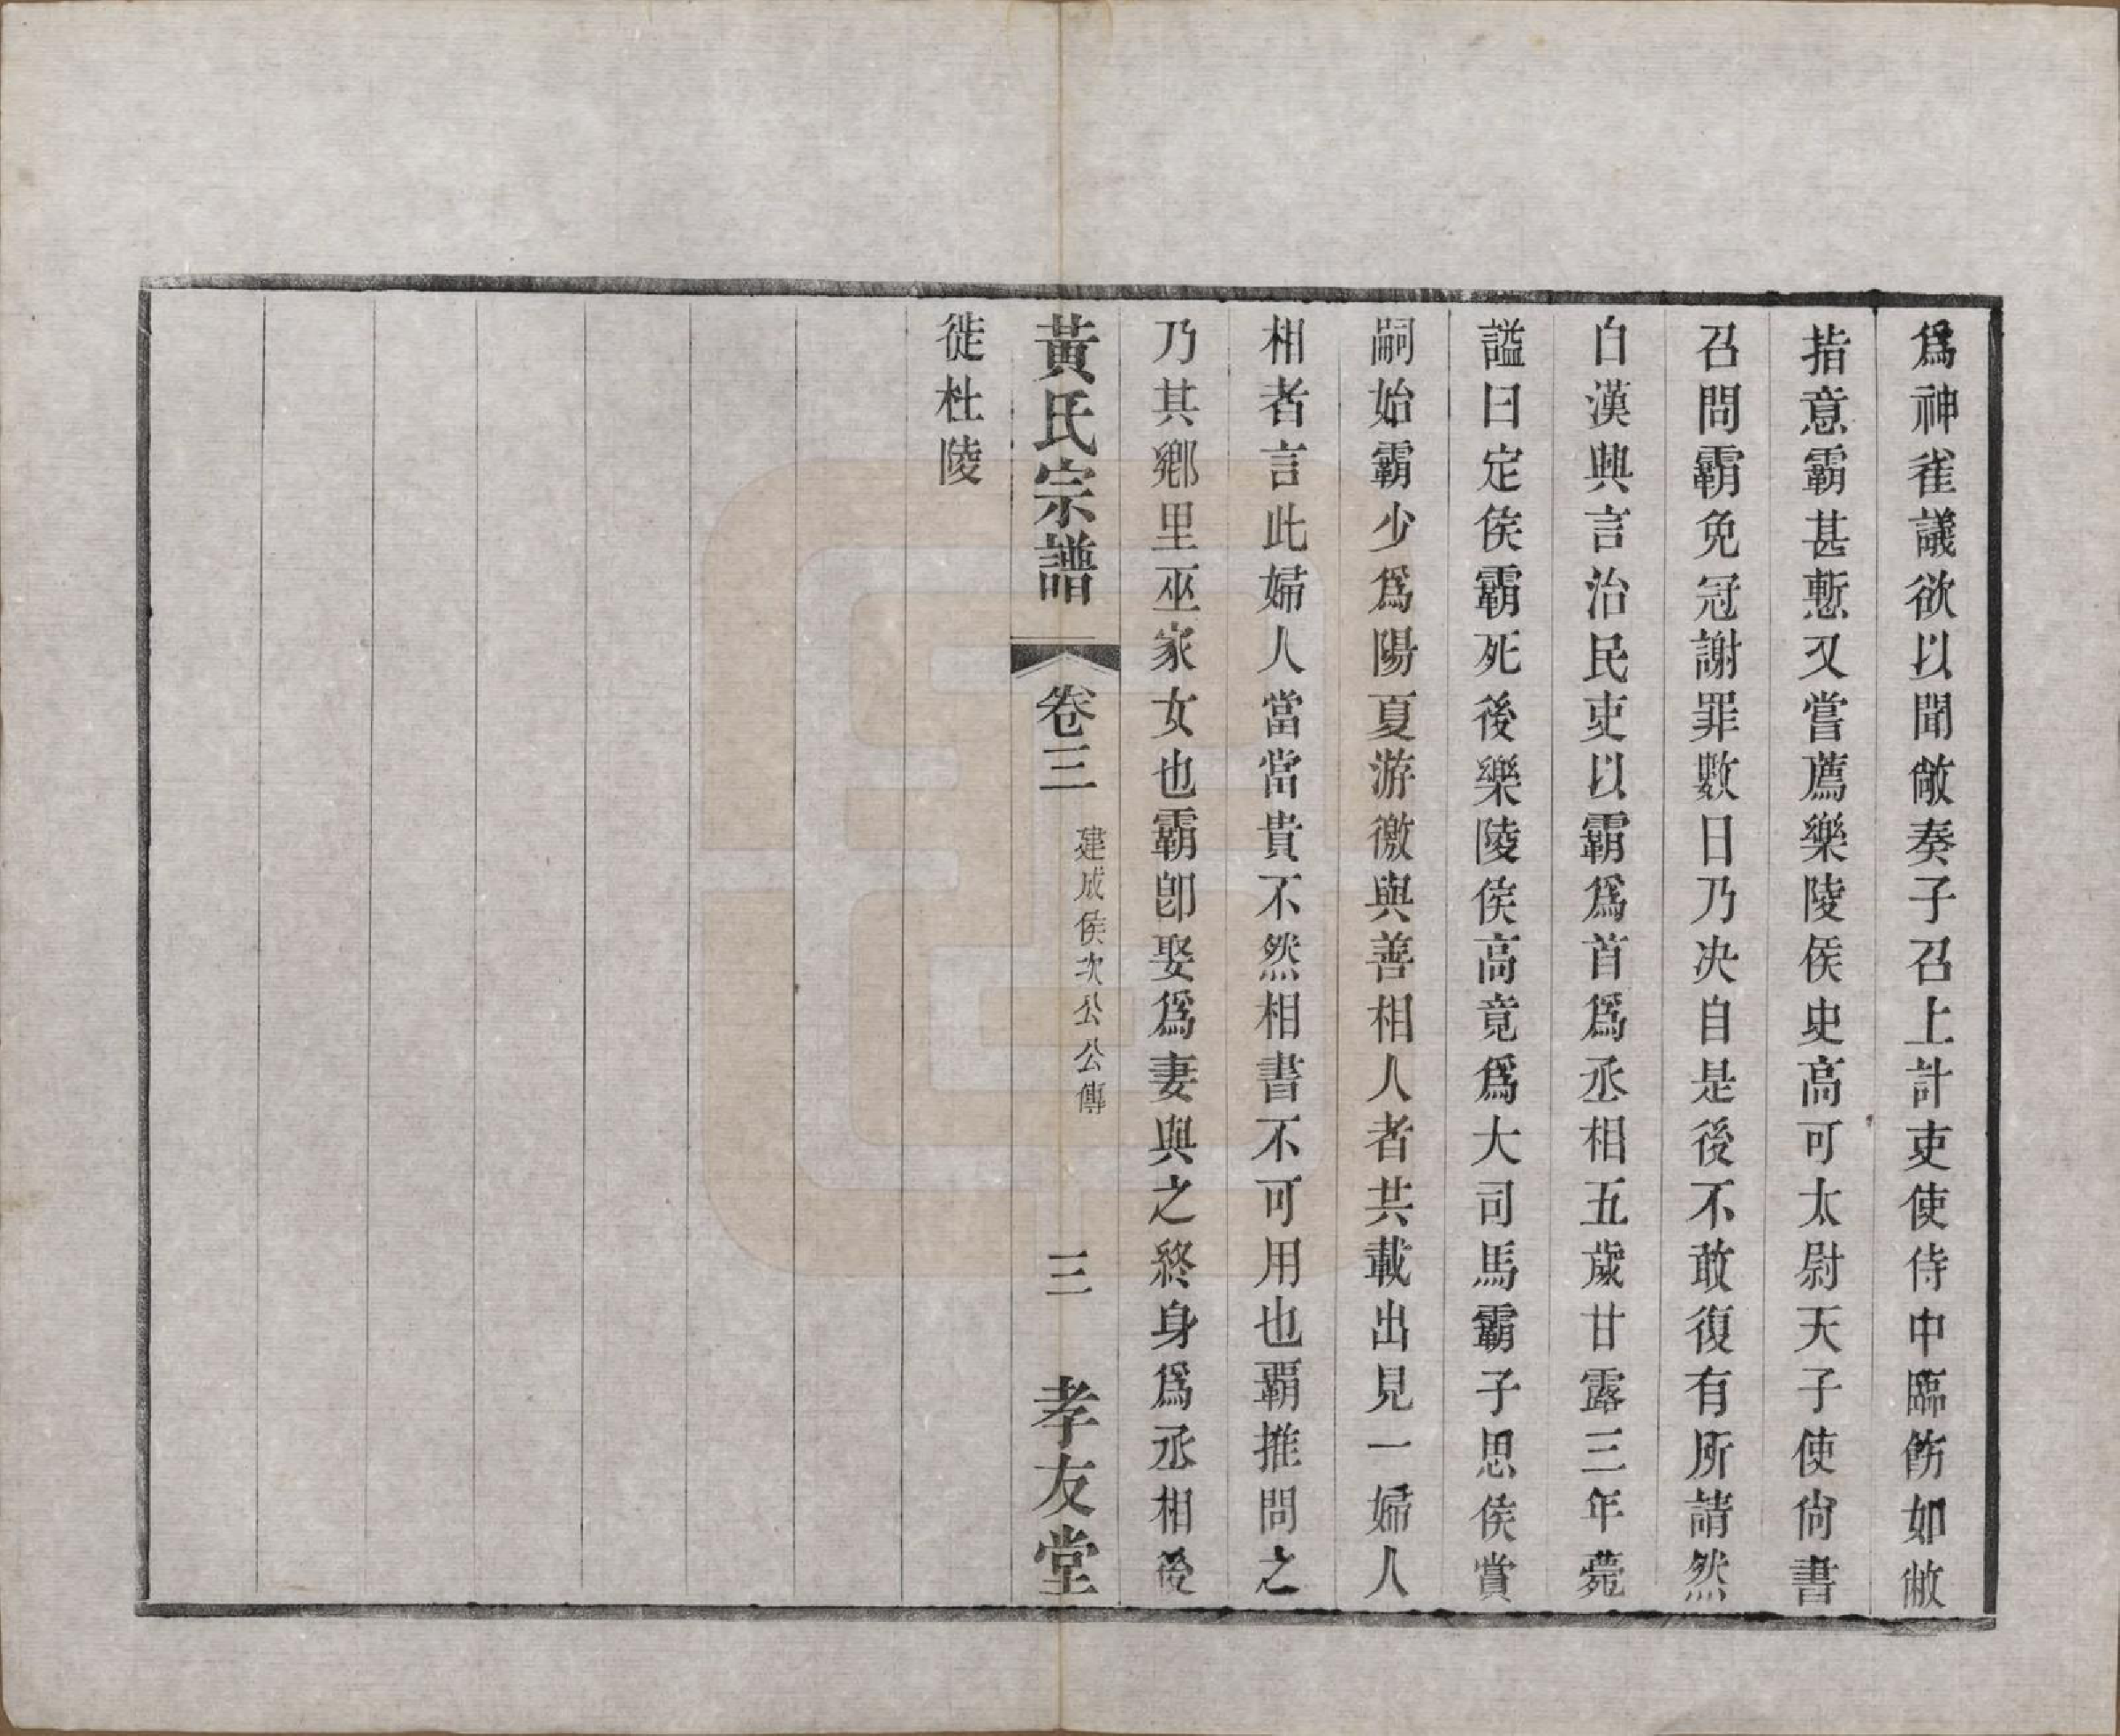 爲神雀議欲以聞敞奏子召上計吏使侍中臨飭如敞
指意霸甚慙又嘗薦樂陵侯史高可太尉天子使尙書
召問霸免冠謝罪數日乃決自是後不敢復有所請然
自漢興言治民吏以霸爲首爲丞相五歲甘露三年薨
謚曰定侯霸死後樂陵侯高竟爲大司馬霸子思侯賞
嗣始霸少爲陽夏游徼與善相人者共載出見一婦人
相者言此婦人當富貴不然相書不可用也霸推問之
乃其鄉里巫家女也霸卽娶爲妻與之終身爲丞相後
黃氏宗譜 卷三 建成侯次公公傳 三 孝友堂
徙杜陵